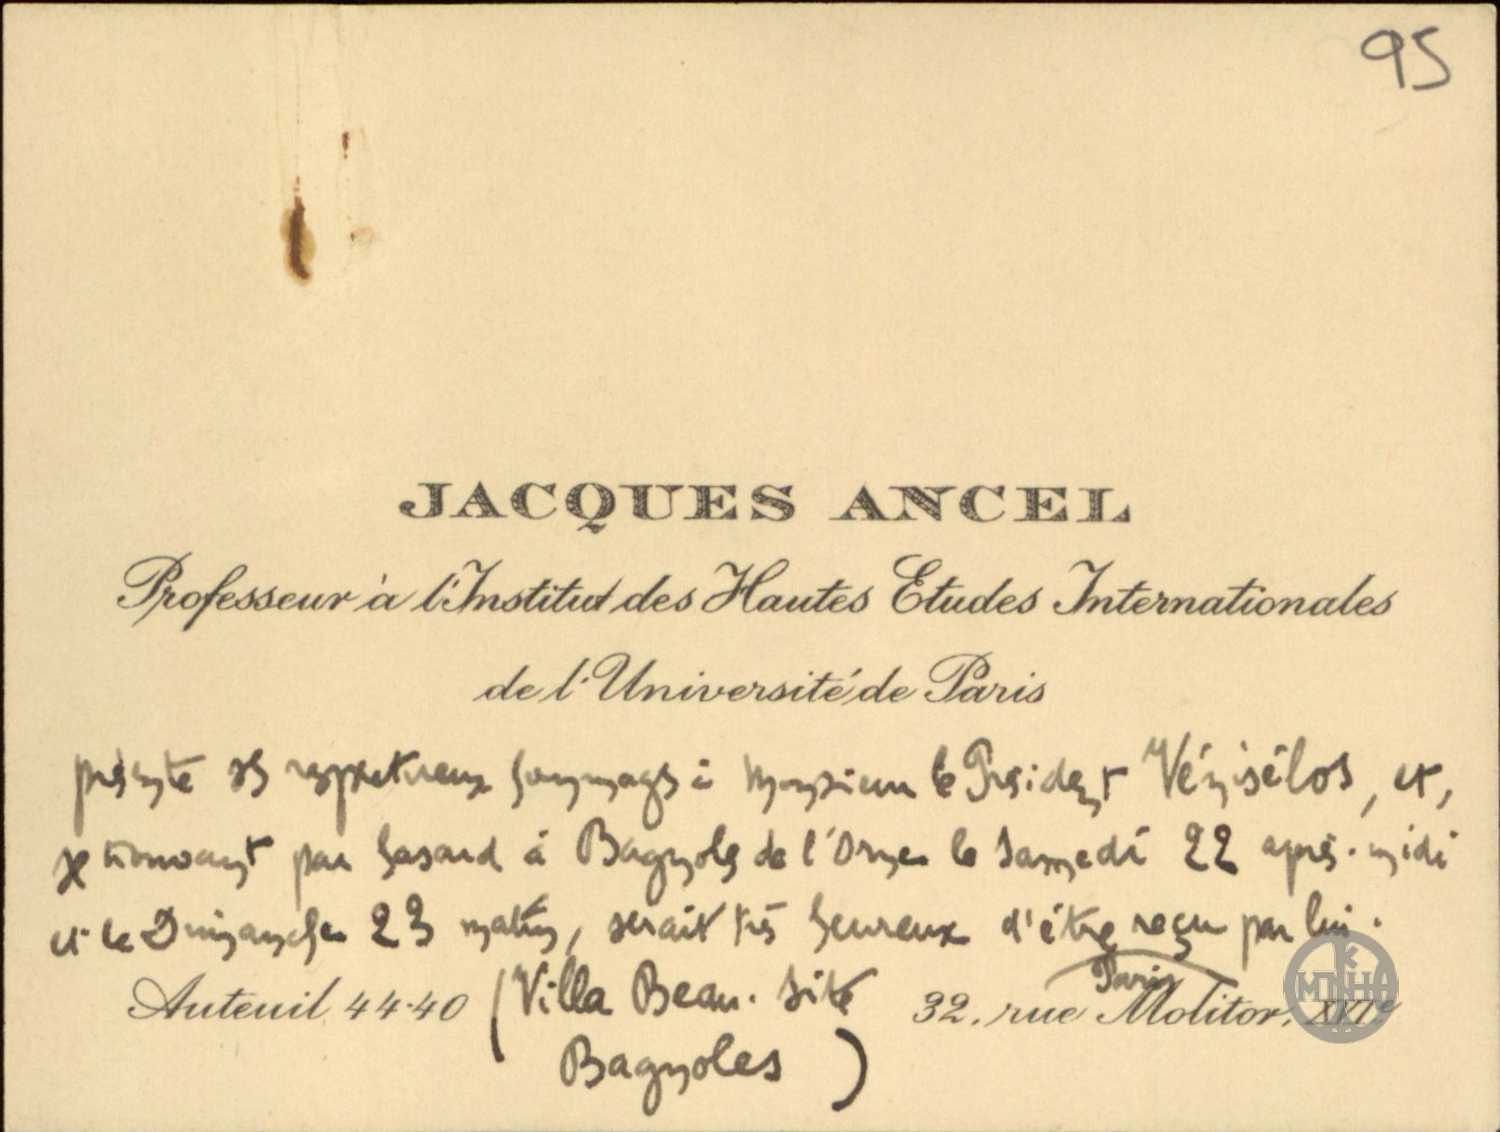 95
JACQUES ANCEL
Professeur à l'Institut des Hautes Etudes Internationales
de l'Université de Paris
présente ses respectueux hommages à Monsieur le Président Vénisélos, et,
se trouvant par hasard à Bagnoles de l'Orne le Samedi 22 après-midi
et le Dimanche 23 matin, serait très heureux d'être reçu par lui.
Paris
Auteuil 44-40 (Villa Beau-Site 32, rue Molitor, XVIe
Bagnoles)